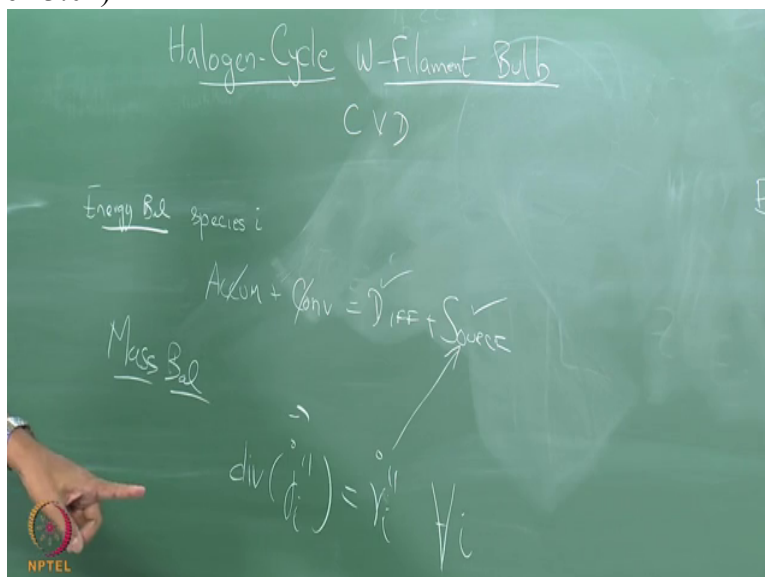 Halogen-Cycle W-Filament Bulb
CVD
Energy Bal species i
Accum + Conv = DIFF + Source
Mass Bal
div(j̇i'') = ṙi'' ∀i
NPTEL